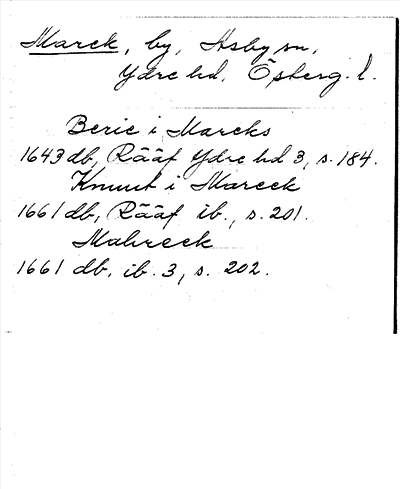 Marek, by, Asby sn,
Ydre hd, Österg. l.
Beric i Mareks
1643 db, Rääf Ydre hd 3, s. 184.
Knuut i Mareek
1661 db, Rääf ib., s. 201.
Mahreck
1661 db, ib. 3, s. 202.